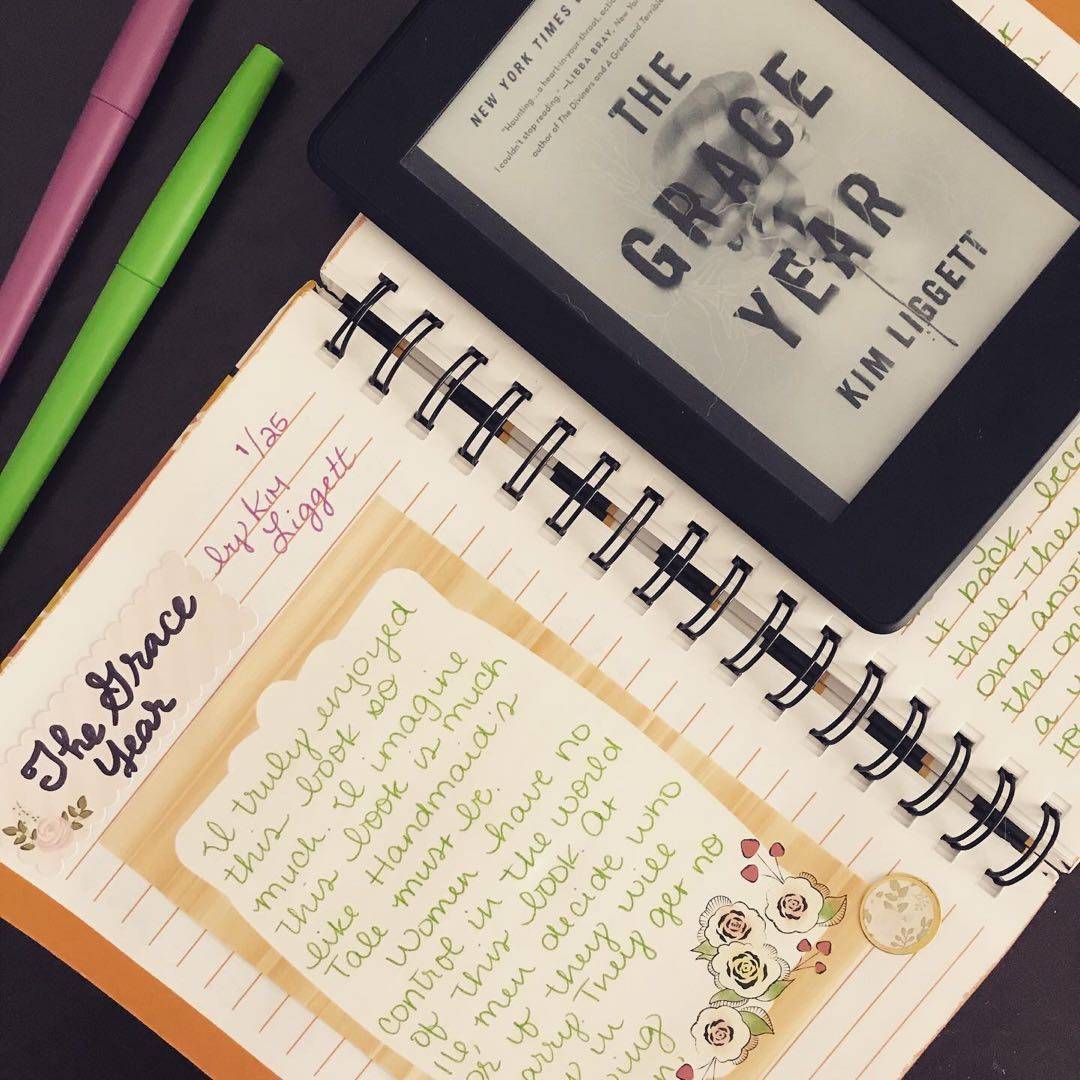 NEW YORK TIMES
"Haunting...a heart-in-your-throat,
I couldn't stop reading." —LIBBA BRAY, New
author of The Diviners and A Great and Terrible
THE
GRACE
YEAR
KIM LIGGETT
1/25
by Kim
Liggett
The Grace
Year
I truly enjoyed
this book so
much. I imagine
this book is much
like Handmaid's
Tale must be.
Women have no
control in the world
of this book. At
men decide who
or if they will
arry. They get no
in
it back,
there, they
one
the
a